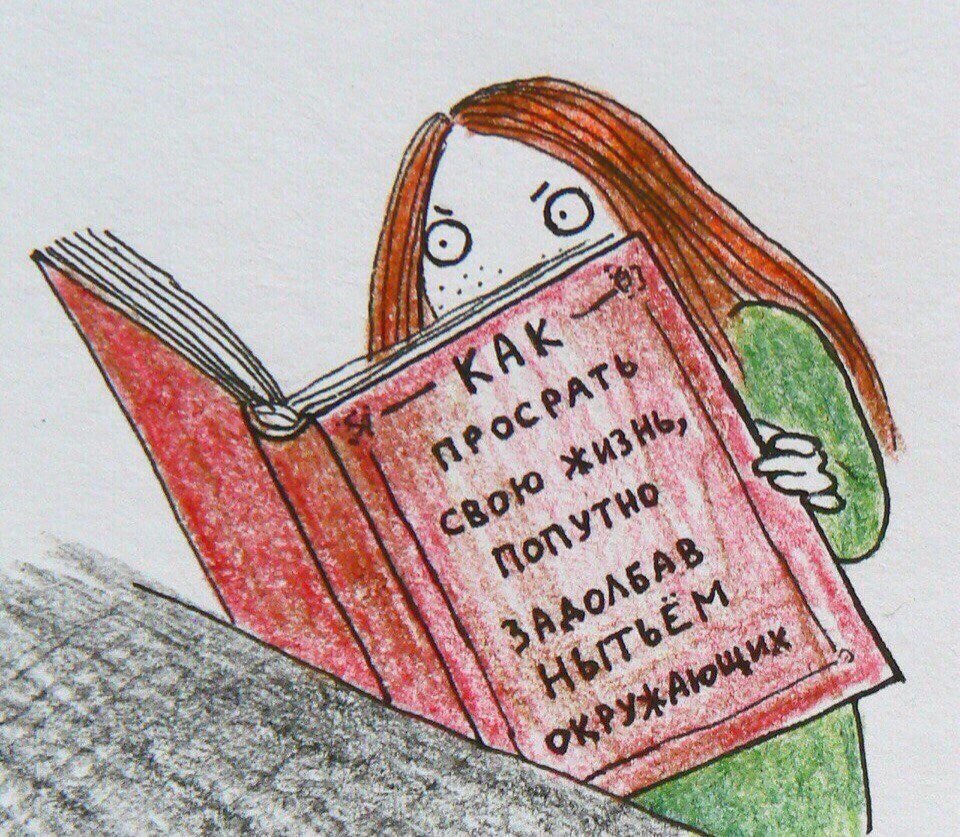 КАК
ПРОСРАТЬ
СВОЮ ЖИЗНЬ,
ПОПУТНО
ЗАДОЛБАВ
НЫТЬЁМ
ОКРУЖАЮЩИХ